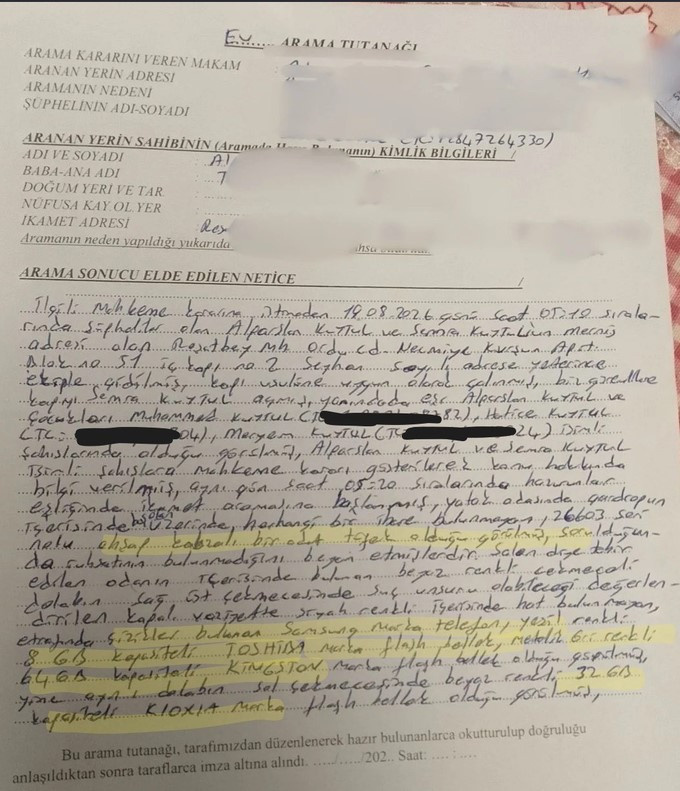 EV...... ARAMA TUTANAĞI
ARAMA KARARINI VEREN MAKAM
ARANAN YERİN ADRESİ
ARAMANIN NEDENİ
ŞÜPHELİNİN ADI-SOYADI
ARANAN YERİN SAHİBİNİN (Aramada KİMLİK BİLGİLERİ /
ADI VE SOYADI : Al
BABA-ANA ADI : T
DOĞUM YERİ VE TAR. :
NÜFUSA KAY.OL.YER :
İKAMET ADRESİ : Reş
Aramanın neden yapıldığı yukarıda
ARAMA SONUCU ELDE EDİLEN NETİCE /
İlgili Mahkeme kararına istinaden 19.08.2026 günü saat 05:10 sırala-
rında Şüpheliler olan Alparslan KUYTUL ve Semra KUYTUL'un mernis
adresi olan Reşatbey Mh. Ordu cd. Necmiye Kurşun Aprt.
Blok no 51 iç kapı no 2 Seyhan sayılı adrese yeterince
ekiple gidilmiş, kapı usulüne uygun olarak çalınmış, biz görevlilere
kapıyı Semra KUYTUL açmış, yanındada eşi Alparslan KUYTUL ve
Çocukları Muhammed KUYTUL (TC 82), Hatice KUYTUL
(TC: 04), Meryem KUYTUL (TC 24) isimli
şahıslarında olduğu görülmüş, Alparslan KUYTUL ve Semra KUYTUL
isimli şahıslara mahkeme kararı gösterilerek konu hakkında
bilgi verilmiş, aynı gün saat 05:20 sıralarında hazırunlar
eşliğinde ikamet aramasına başlanmış, yatak odasında gardropun
içerisinde üzerinde, herhangi bir ibare bulunmayan, 26603 seri
nolu ahşap kabzalı bir adet tüfek olduğu görülmüş, sorulduğun-
da ruhsatının bulunmadığını beyan etmişlerdir. Salon diye tabir
edilen odanın içerisinde bulunan beyaz renkli çekmeceli
dolabın sağ üst çekmecesinde suç unsuru olabileceği değerlen-
dirilen kapalı vaziyette siyah renkli içerisinde hat bulunmayan,
etrafında çizikler bulunan Samsung marka telefon, yeşil renkli
8 GB kapasiteli TOSHIBA marka flash bellek, metalik gri renkli
64 GB kapasiteli KINGSTON marka flash bellek olduğu görülmüş,
yine aynı dolabın sol çekmecesinde beyaz renkli 32 GB
kapasiteli KIOXIA marka flash bellek olduğu görülmüş,
Bu arama tutanağı, tarafımızdan düzenlenerek hazır bulunanlarca okutturulup doğruluğu
anlaşıldıktan sonra taraflarca imza altına alındı. ..../..../202.. Saat: .... : ....